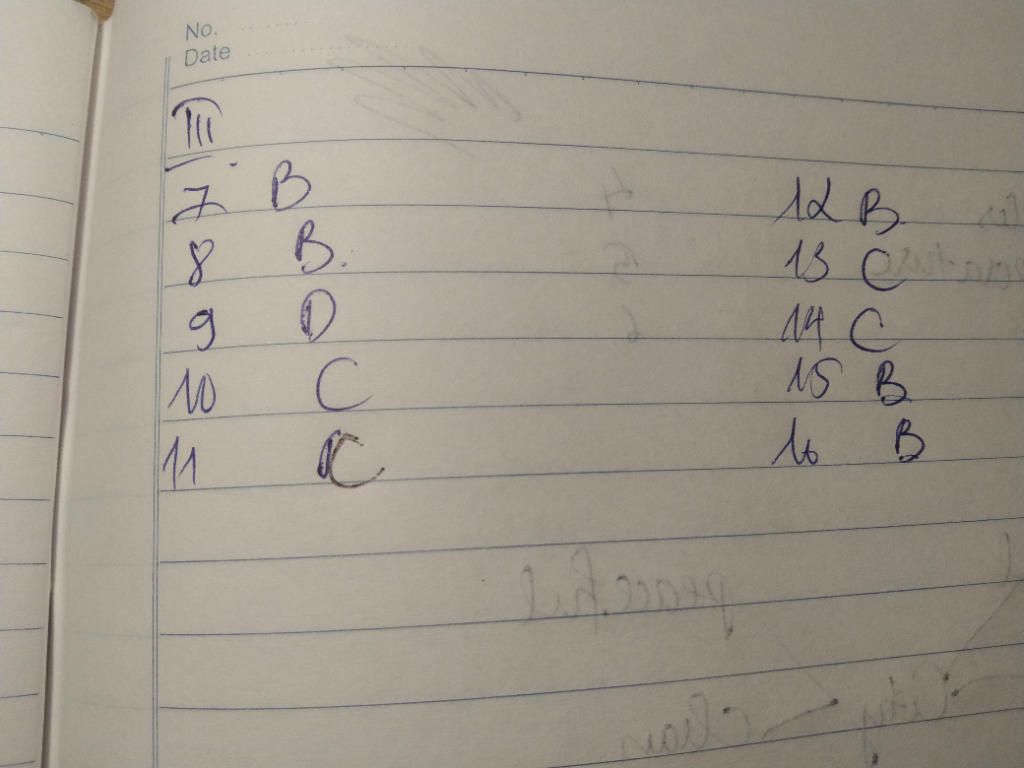 No.
Date
III
7 B
8 B.
9 D
10 C
11 C
12 B
13 C
14 C
15 B
16 B